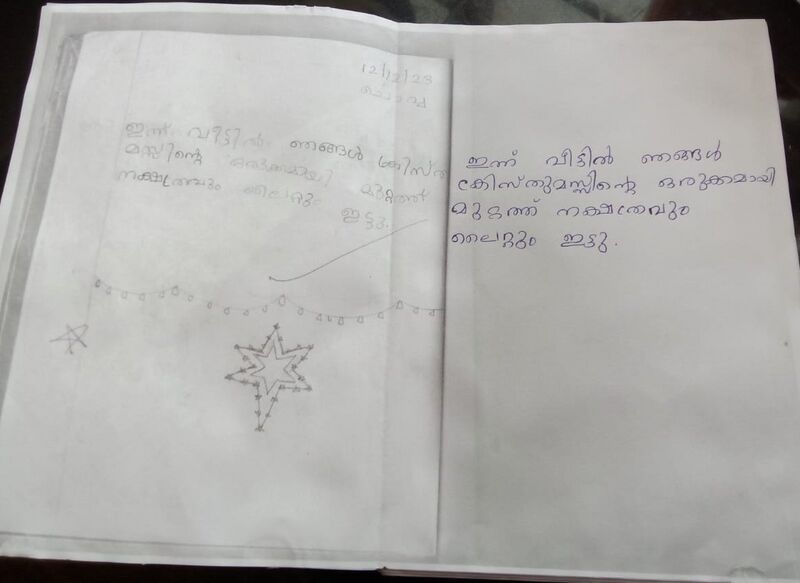 12/12/23
ചൊവ്വ
ഇന്ന് വീട്ടിൽ ഞങ്ങൾ ക്രിസ്തു
മസ്സിന്റെ ഒരുക്കമായി മുറ്റത്ത്
നക്ഷത്രവും ലൈറ്റും ഇട്ടു.
ഇന്ന് വീട്ടിൽ ഞങ്ങൾ
ക്രിസ്തുമസ്സിന്റെ ഒരുക്കമായി
മുറ്റത്ത് നക്ഷത്രവും
ലൈറ്റും ഇട്ടു.